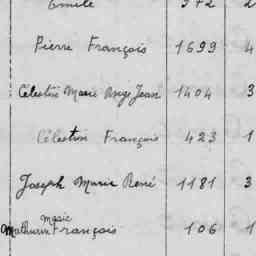 Emile 372 2
Pierre François 1699 4
Célestin Marie Ange Jean 1404 3
Célestin François 423 1
Joseph Marie René 1181 3
Marie
Mathurin François 106 1